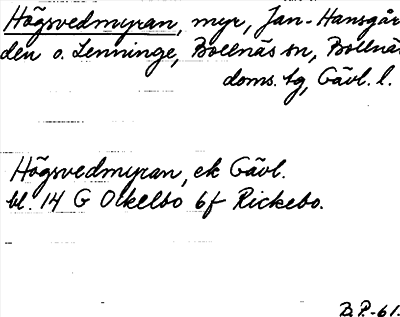 Högsvedmyran, myr, Jan-Hansgår
den o. Lenninge, Bollnäs sn, Bollnä
doms. tg, Gävl. l.
Högsvedmyran, ek Gävl.
bl. 14 G Ockelbo bf Rickebo.
B.P.-61.